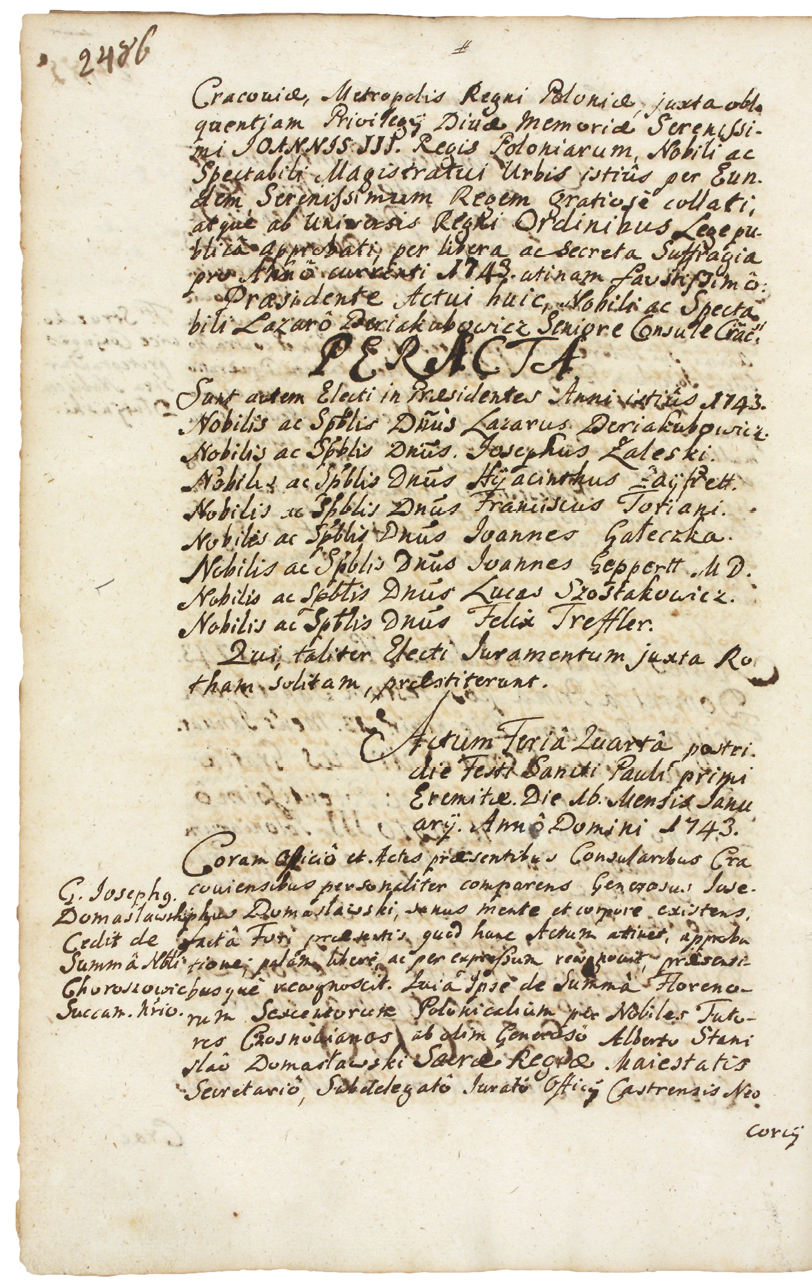 2486
#
Cracoviæ, Metropolis Regni Poloniæ, juxta oblo
quentjam Privilegÿ Divæ Memoriæ Serenissi-
mi IOANNIS III. Regis Poloniarum, Nobili ac
Spectabili Magistratui Urbis istiûs per Eun-
dem Serenissimum Regem Gratiosè collati,
atquè ab Universis Regni Ordinibus Lege pu-
blicâ approbati, per libera ac secreta Suffragia
pro Annô currenti 1743. utinam faustissimô:
Præsidente Actui huic, Nobili ac Specta
bili Lazarô Deriakubowicz Seniore Consule Crac:
PERACTA
Sunt autem Electi in Præsidentes Anni istiûs 1743.
Nobilis ac Spblis Dnūs Lazarus Deriakubowicz
Nobilis ac Spblis Dnūs. Josephus Zaleski.
Nobilis ac Spblis Dnūs Hÿacinthus Zayfrett.
Nobilis ac Spblis Dnūs Franciscus Toriani.
Nobilis ac Spblis Dnūs Ioannes Gałeczka.
Nobilis ac Spblis Dnūs Ioannes Geppertt M D.
Nobilis ac Spblis Dnūs Lucas Szostakowicz.
Nobilis ac Spblis Dnūs Felix Treffler.
Qui, taliter Electi Iuramentum juxta Ro
tham solitam, præstiterunt.
Actum Feriâ Quartâ postri.
die Festi Sancti Pauli primi
Eremitæ. Die 16. Mensis Ianu
arÿ. Annô Domini 1743.
Coram Officiô et Actis præsentibus Consularibus Cra
coviensibus personaliter comparens Generosus Iose-
phus Domasławski, sanus mente et corpore existens,
factâ Fori præsentis, quod hunc Actum attinet, approba
tione, palàm liberè, ac per expressum recognovit, præsenti-
busquè recognoscit. Quia Ipse de Summâ Floreno-
rum Sexcentorum Polonicalium per Nobiles Tuto-
res Chosnobianos, ab olim Generosô Alberto Stani
slaô Domasławski Sacræ Regiæ Maiestatis
Secretariô, Subdelegatô Iuratô Officÿ Castrensis Neo
corcÿ
G. Josephg.
Domasławski
Cedit de
Summâ Nbli
Choroszowic
Succam. hrio.